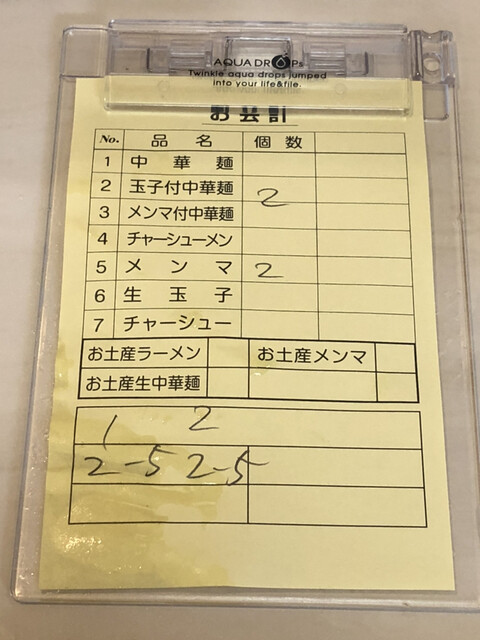 AQUA DROPs
Twinkle aqua drops jumped
into your life&file.
お会計
No. 品名 個数
1 中華麺
2 玉子付中華麺 2
3 メンマ付中華麺
4 チャーシューメン
5 メンマ 2
6 生玉子
7 チャーシュー
お土産ラーメン お土産メンマ
お土産生中華麺
1 2
2-5 2-5